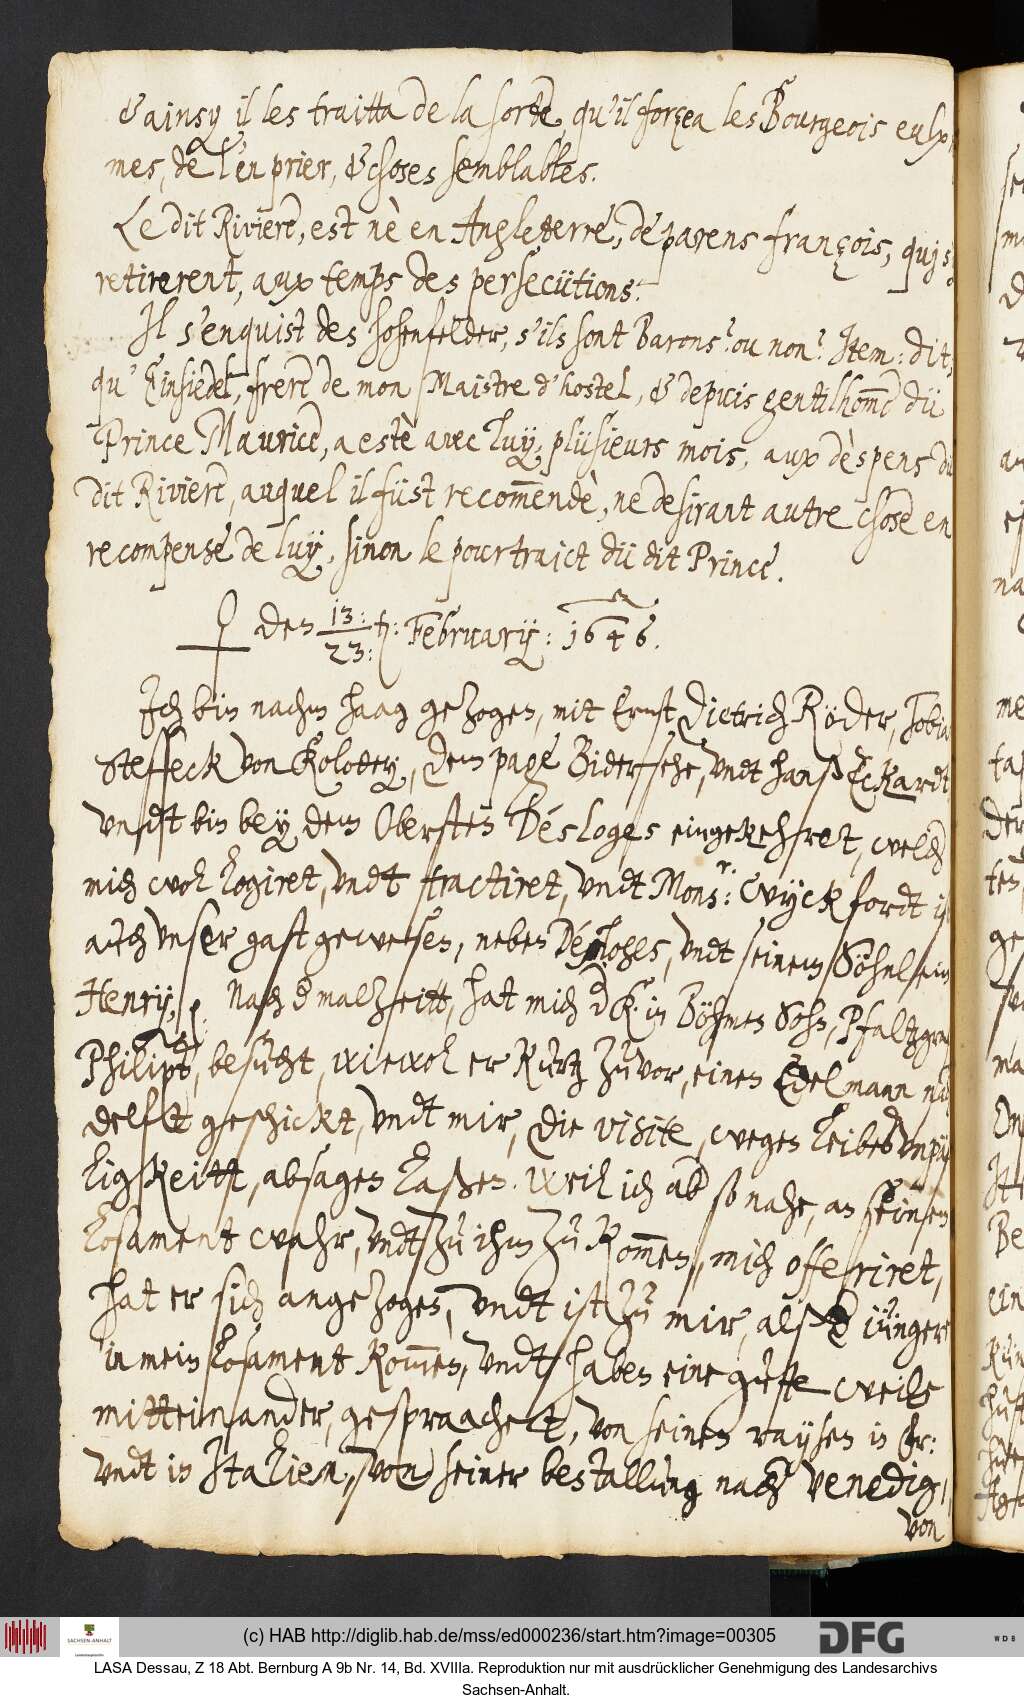 & ainsy il les traitta de la sorte, qu'il forçea les Bourgeois eulx
mes, de l'en prier, & choses semblables.
Le dit Riviere, est nè en Angleterre, de parens françois, qui s
retirerent, aux temps des persecütions.
Il s'enquist des Hohenfelder, s'ils sont Barons? ou non? Item: dit,
qu' Einsiedel, frere de mon Maistre d'hostel, & depuis gentilhom̅e dü
Prince Maurice, a estè avec luÿ, plüsieurs mois, aux dèspens dü
dit Riviere, auquel il füst recom̅endè, ne desirant autre chose en
recompense de luÿ, sinon le pourtraict dü dit Prince.
♀ den 13: / 23: Februarÿ: 1646.
Ich bin nachm Haag gezogen, mit Ernst Dietrich Röder, Tobia
Steffeck von Kolodey, dem page Bidersehe, vndt Hanß Eckardt
vndt bin beÿ dem Obersten Désloges eingekehret, welch
mich wol logiret, vndt tractiret, vndt Monsr: Wÿckfordt
auch vnser gast gewesen, neben Désloges, vndt seinem Söhnlein
Henrÿ. Nach der malzeitt, hat mich der K. in Böhmen Sohn, Pfaltzgra
Philips, besucht, wiewol er kurtz zuvor, einen Edelmann na
Delfft geschickt, vndt mir, die visite, wegen leibes vnpäß
ligkeitt, absagen laßen. Weil ich aber so nahe, an seinem
losament wahr, vndt zu ihm zu kom̅en, mich offeriret,
hat er sich angezogen, vndt ist zu mir, alß der jüngere
in mein losament kom̅en, vndt haben eine gute weile
mitteinander, gespraachet, von seinen raysen in Fr:
vndt in Italien, von seiner bestallung nach Venedig,
von
(c) HAB http://diglib.hab.de/mss/ed000236/start.htm?image=00305
SACHSEN-ANHALT
DFG
WDB
LASA Dessau, Z 18 Abt. Bernburg A 9b Nr. 14, Bd. XVIIIa. Reproduktion nur mit ausdrücklicher Genehmigung des Landesarchivs
Sachsen-Anhalt.